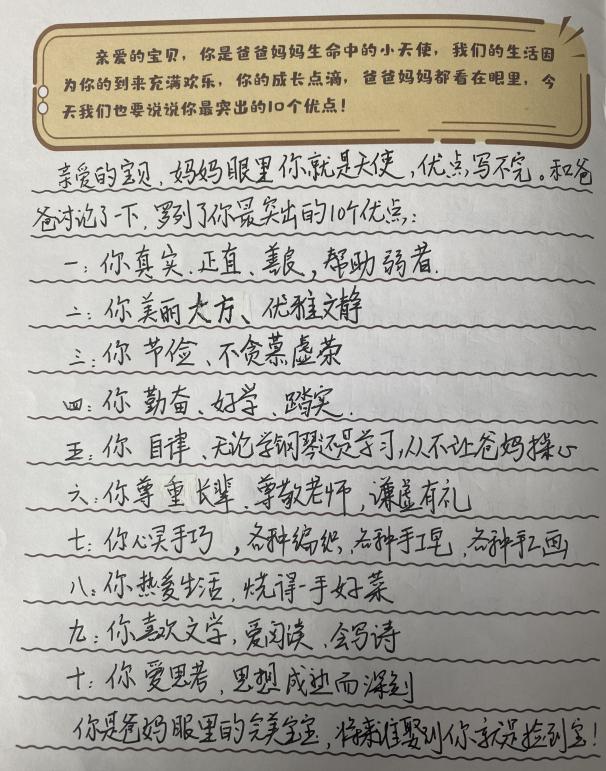 亲爱的宝贝，你是爸爸妈妈生命中的小天使，我们的生活因
为你的到来充满欢乐，你的成长点滴，爸爸妈妈都看在眼里，今
天我们也要说说你最突出的10个优点！
亲爱的宝贝，妈妈眼里你就是天使，优点写不完。和爸
爸讨论了一下，罗列了你最突出的10个优点：
一：你真实、正直、善良，帮助弱者.
二：你美丽大方、优雅文静
三：你 节俭、不贪慕虚荣
四：你 勤奋、好学、踏实.
五：你 自律、无论学钢琴还是学习，从不让爸妈操心
六：你尊重长辈、尊敬老师，谦虚有礼
七：你心灵手巧，各种编织，各种手工，各种手工画
八：你热爱生活，烧得一手好菜
九：你喜欢文学，爱阅读，会写诗
十：你爱思考，思想成熟而深刻
你是爸妈眼里的完美宝宝，将来谁娶到你就是捡到宝！